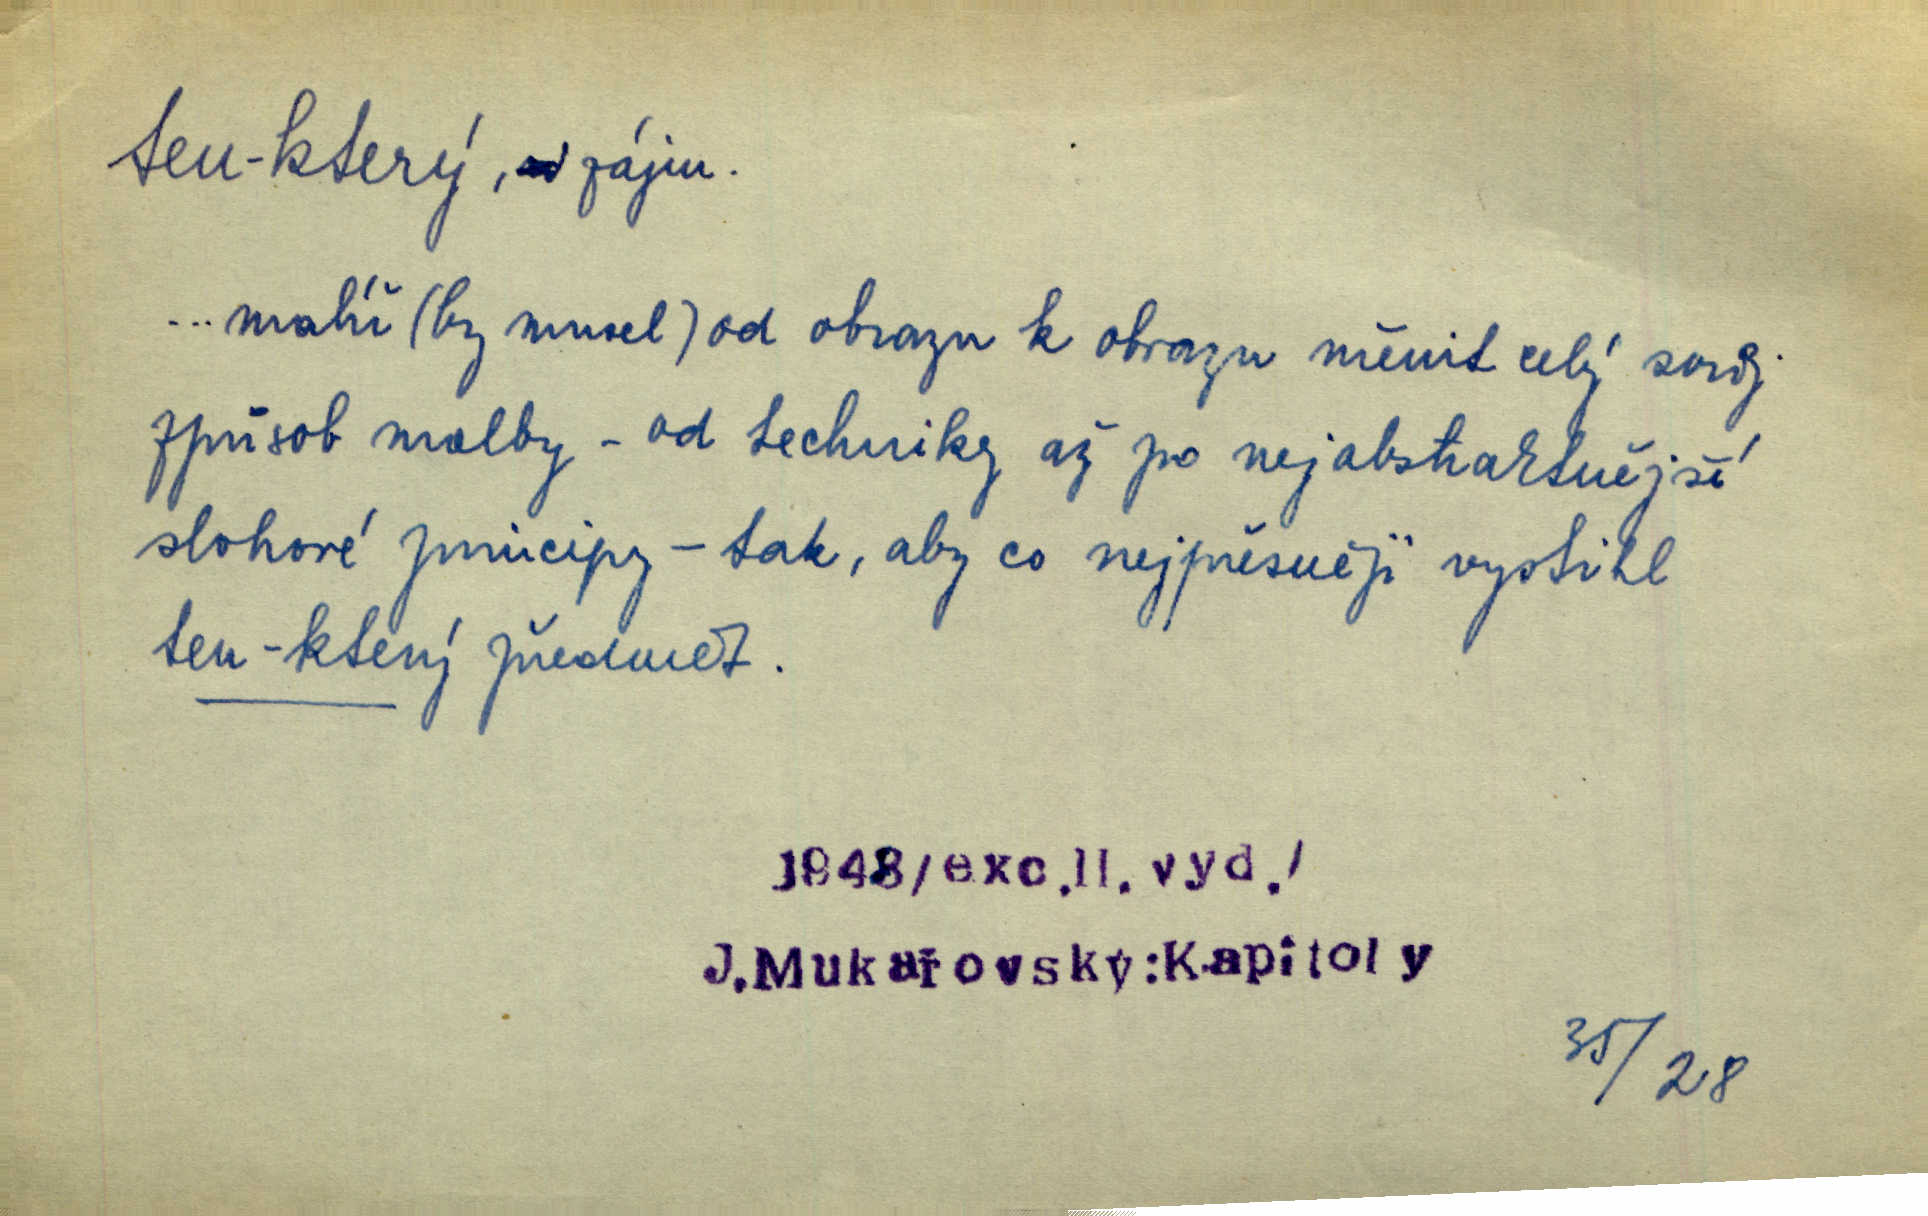 ten-který, zájm.
...malíř (by musel) od obrazu k obrazu měnit celý svůj
způsob malby - od techniky až po nejabstraktnější
slohové principy - tak, aby co nejpřesněji vystihl
ten-který předmět.
1948/exc.II.vyd./
J.Mukařovský:Kapitoly
35/28